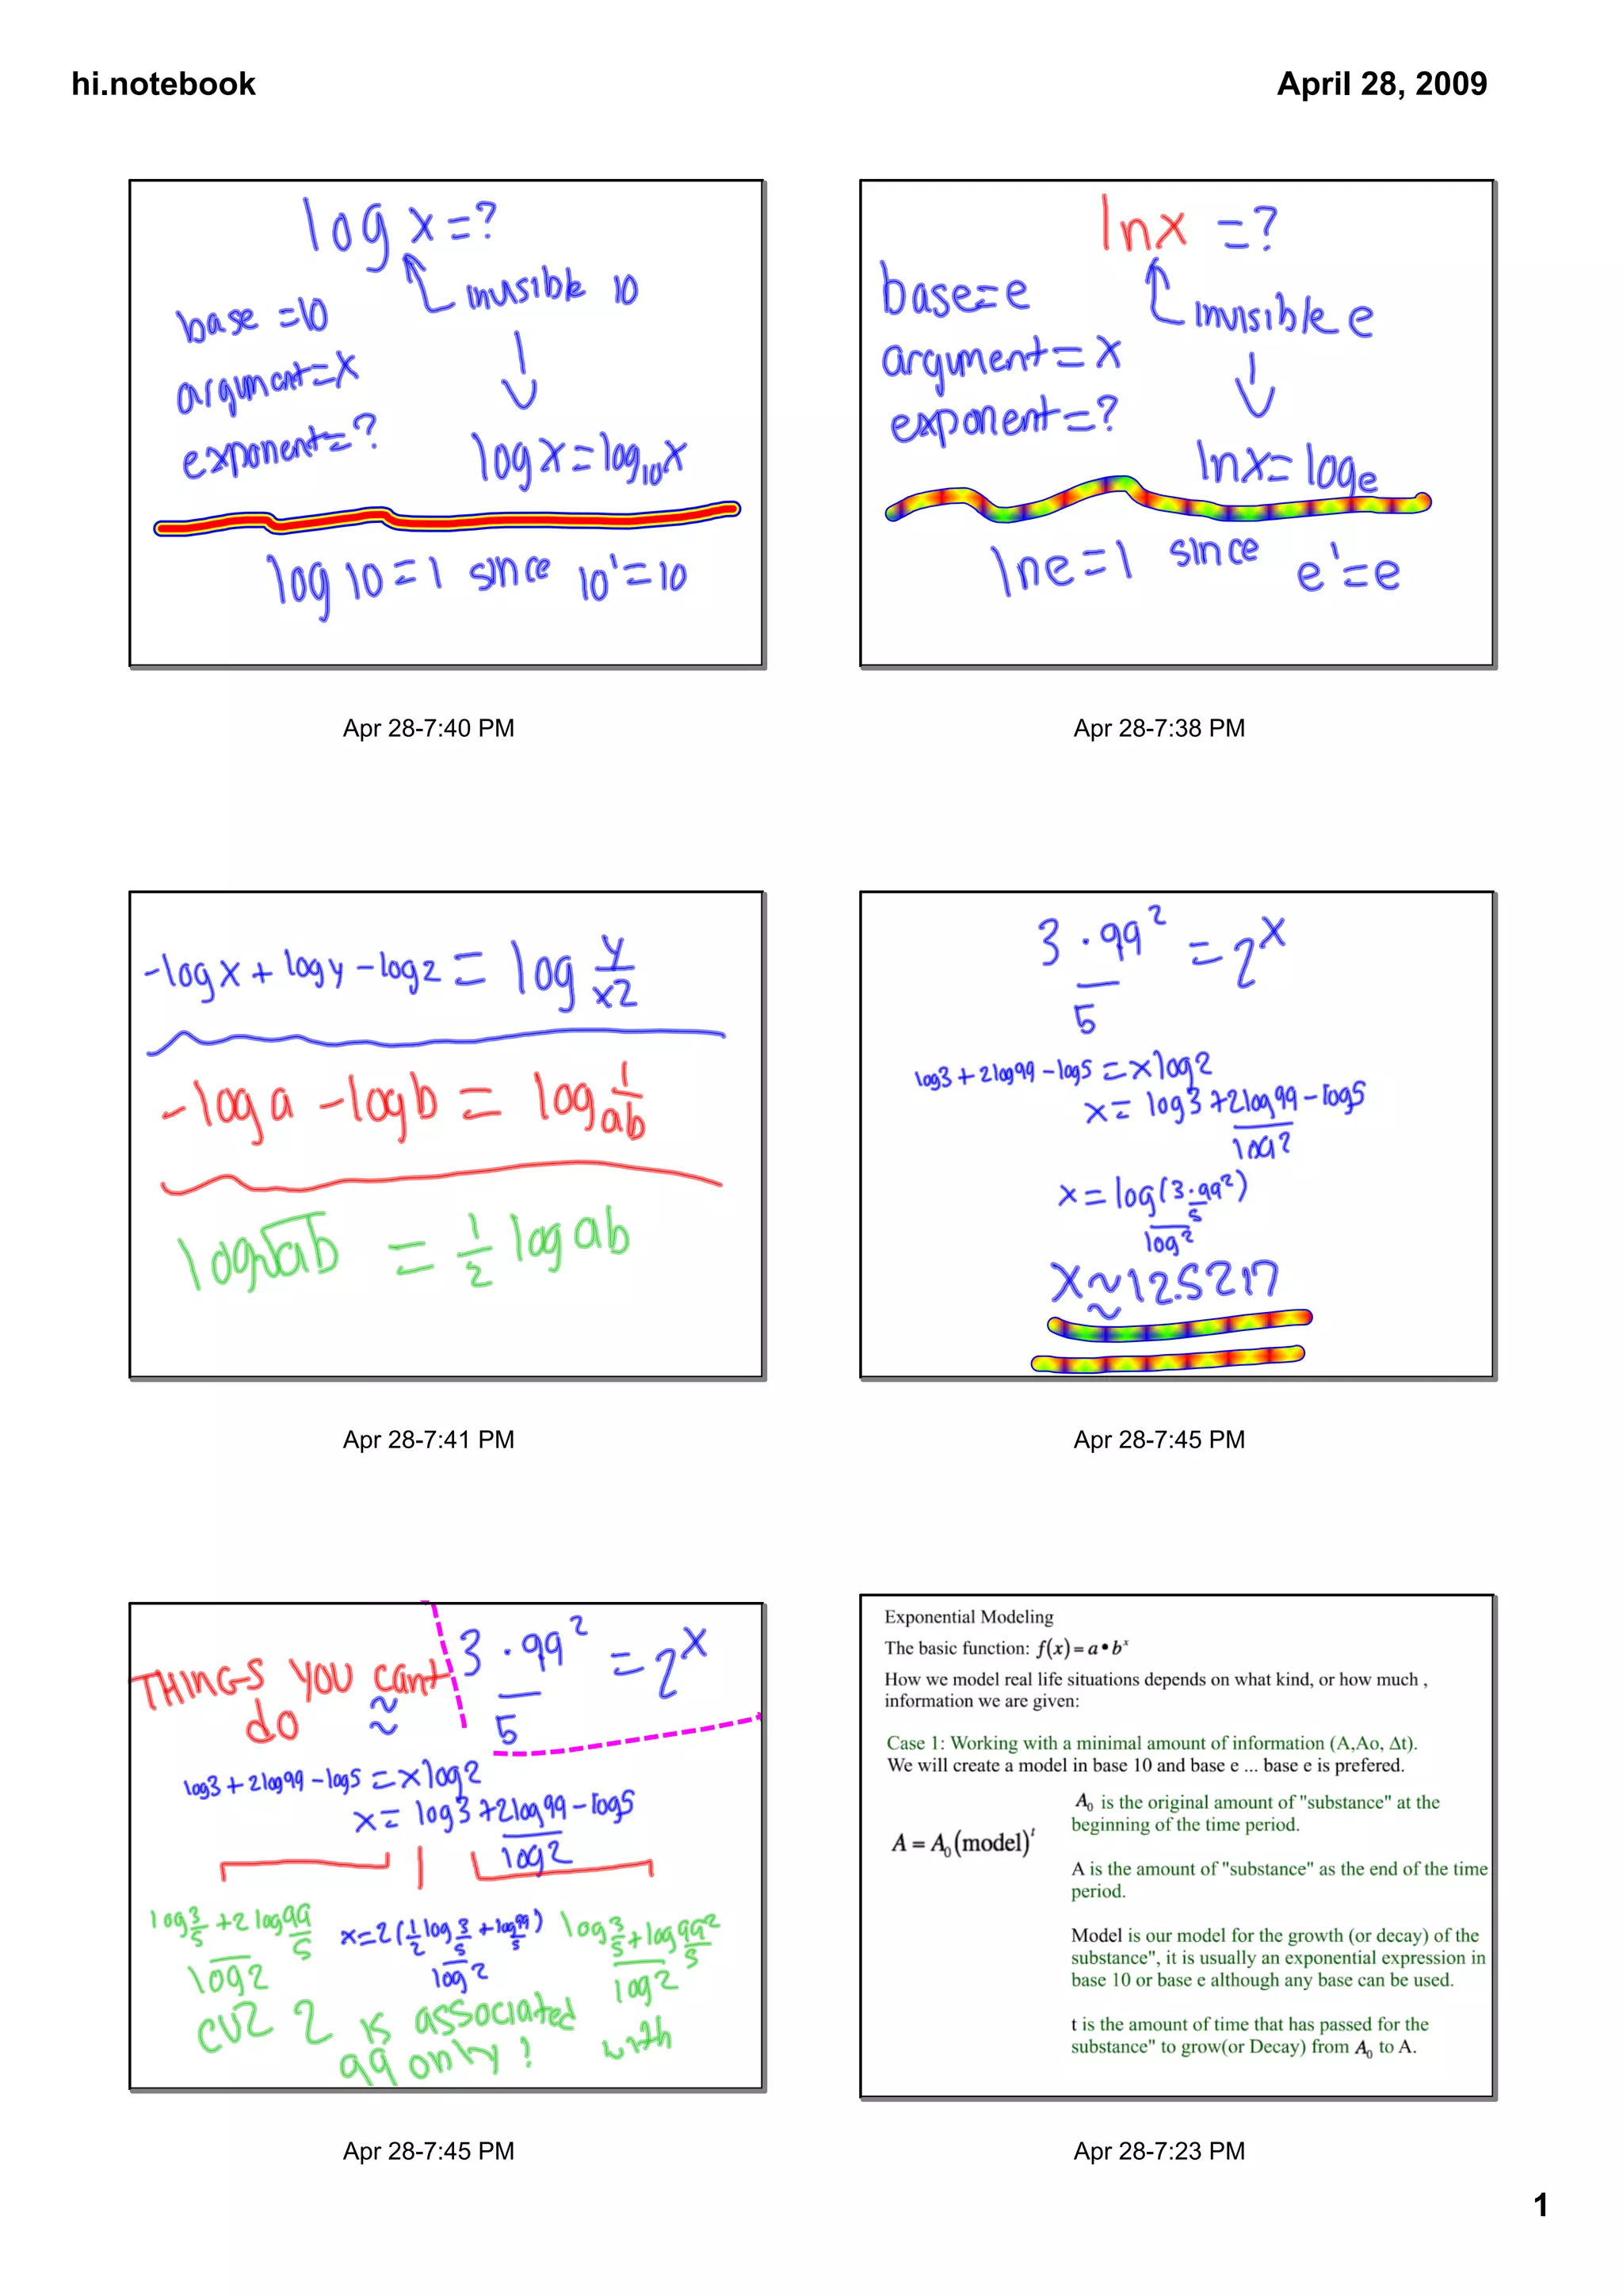 hi.notebook
April 28, 2009
log x=?
invisible 10
base =10
argument=x
exponent=?
↓
log x = log₁₀x
log 10 = 1 since 10¹=10
Apr 28-7:40 PM
lnx =?
base=e
invisible e
argument=x
exponent=?
↓
lnx=logₑ
lne=1 since e¹=e
Apr 28-7:38 PM
-logx + logy - logz = log y/xz
-log a - log b = log 1/ab
log√ab = 1/2 log ab
Apr 28-7:41 PM
3·99²/5 = 2ˣ
log3 + 2log99 - log5 = xlog2
x = log3 + 2log99 - log5 / log2
x = log(3·99²/5) / log2
x≈12.5217
Apr 28-7:45 PM
THINGS YOU can't do
3·99²/5 = 2ˣ
≈
log3 + 2log99 - log5 = xlog2
x = log3 + 2log99 - log5 / log2
log 3/5 + 2 log 99/5 / log2
x=2(1/2 log 3/5 + log 99/5) / log 2
log 3/5 + log 99²/5 / log2
cuz 2 is associated with
99 only!
Apr 28-7:45 PM
Exponential Modeling
The basic function: f(x) = a • bˣ
How we model real life situations depends on what kind, or how much ,
information we are given:
Case 1: Working with a minimal amount of information (A,Ao, Δt).
We will create a model in base 10 and base e ... base e is prefered.
A = A₀(model)ᵗ
A₀ is the original amount of "substance" at the
beginning of the time period.
A is the amount of "substance" as the end of the time
period.
Model is our model for the growth (or decay) of the
substance", it is usually an exponential expression in
base 10 or base e although any base can be used.
t is the amount of time that has passed for the
substance" to grow(or Decay) from A₀ to A.
Apr 28-7:23 PM
1